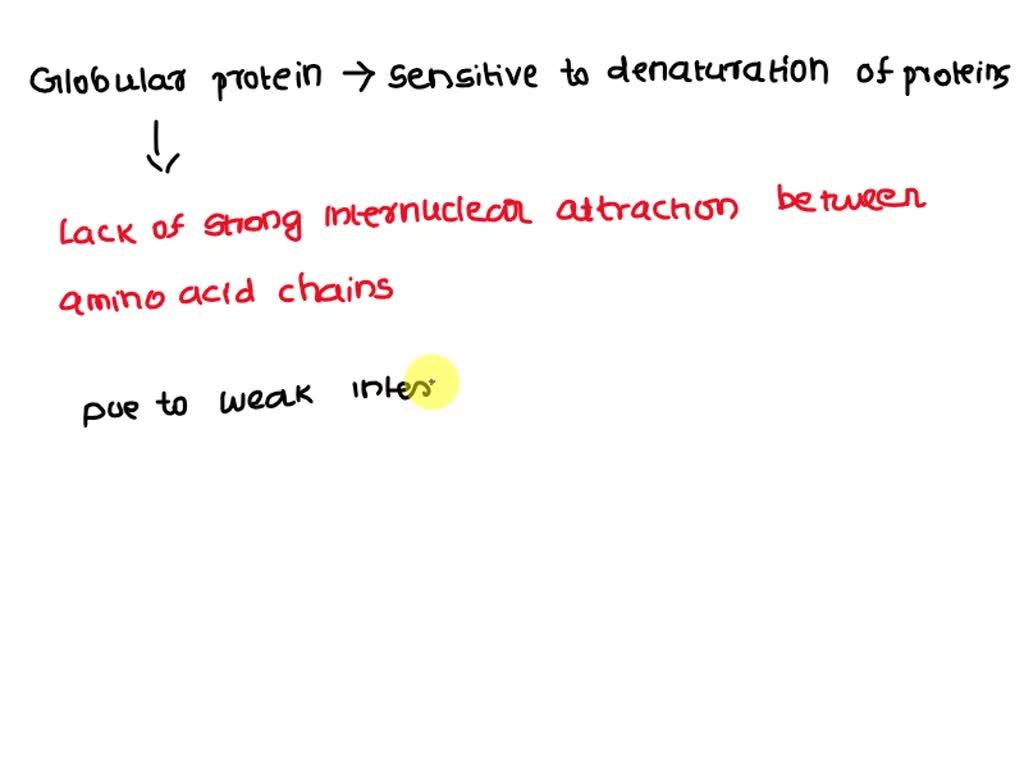 Globular protein → sensitive to denaturation of proteins
↓
Lack of strong internuclear attraction between
amino acid chains
Due to weak inter